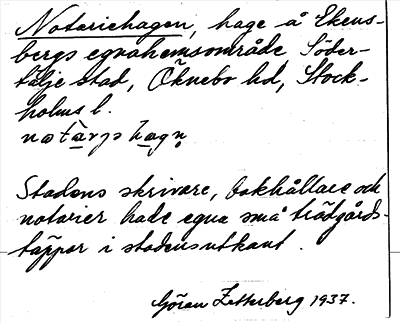 Notariehagen, hage å Ekens-
bergs egnahemsområde Söder-
tälje stad, Öknebo hd, Stock-
holms l.
Stadens skrivare, bokhållare och
notarier hade egna små trädgårds-
täppor i stadensutkant.
Göran Zetterberg 1937.